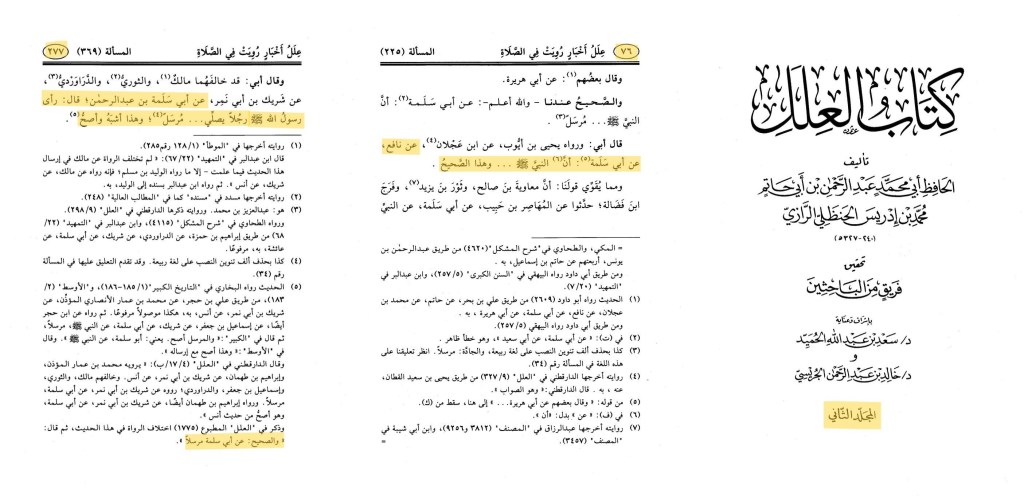 كتاب العلل
تأليف
الحافظ أبي محمد عبد الرحمن بن أبي حاتم
محمد بن إدريس الحنظلي الرازي
(٢٤٠-٣٢٧هـ)
تحقيق
فريق من الباحثين
بإشراف وعناية
د/ سعد بن عبد الله الحميد
و
د/ خالد بن عبد الرحمن الجريسي
المجلد الثاني
٧٦ عِلَلُ أَخْبَارٍ رُوِيَتْ فِي الصَّلَاةِ المسألة (٢٢٥)
وقال بعضُهم(١): عن أبي هريرة.
والـصَّـحيـحُ عـنـدنـا - والله أعلـم-: عـن أبـي سَـلَـمـة(٢): أنَّ
النبيَّ ﷺ ... مُرسَلٌ(٣).
قال أبي: ورواه يحيى بن أيُّوب، عن ابن عَجْلان(٤)، عن نافع،
عن أبي سَلَمة(٥): أنَّ(٦) النبيَّ ﷺ ... وهذا الصَّحيحُ.
ومما يُقَوِّي قولَنا: أنَّ معاويةَ بنَ صالح، وثَوْرَ بنَ يزيد(٧)، وفَرَجَ
ابنَ فَضَالة؛ حدَّثوا عن المُهَاصِر بن حَبِيب، عن أبي سَلَمة، عن النبيِّ
= المكي، والطحاوي في "شرح المشكل" (٤٦٢٠) من طريق عبدالرحمٰن بن
يونس، أربعتهم عن حاتم بن إسماعيل، به.
ومن طريق أبي داود رواه البيهقي في "السنن الكبرى" (٢٥٧/٥)، وابن عبدالبر في
"التمهيد" (٧/٢٠).
(١) الحديث رواه أبو داود (٢٦٠٩) من طريق علي بن بحر، عن حاتم، عن محمد بن
عجلان، عن نافع، عن أبي سلمة، عن أبي هريرة، به.
ومن طريق أبي داود رواه البيهقي (٢٥٧/٥).
(٢) في (ت): « عن أبي سلمة، عن أبي سعيد »، وهو خطأ ظاهر.
(٣) كذا بحذف ألف تنوين النصب على لغة ربيعة، والجادَّة: مرسلاً. انظر تعليقنا على
هذه اللغة في المسألة رقم (٣٤).
(٤) روايته أخرجها الدارقطني في "العلل" (٣٢٧/٩) من طريق يحيى بن سعيد القطان،
عنه، به. قال الدارقطني:« وهو الصواب ».
(٥) من قوله: « وقال بعضهم عن أبي هريرة... » إلى هنا، سقط من (ك).
(٦) في (ف): « عن » بدل: «أن ».
(٧) روايته أخرجها عبدالرزاق في "المصنف" (٣٨١٢ و٩٢٥٦)، وابن أبي شيبة في
"المصنف" (٣٤٥٧). =
عِلَلُ أَخْبَارٍ رُوِيَتْ فِي الصَّلَاةِ المسألة (٣٦٩) ٢٧٧
وقال أبي: قد خالفَهُما مالكٌ(١)، والثوريُّ(٢)، والدَّرَاوَرْدِيُّ(٣)،
عن شَريك بن أبي نَمِر، عن أبي سَلَمة بن عبدالرحمٰن؛ قال: رأى
رسولُ الله ﷺ رجُلًا يصلِّي... مُرسَلٌ(٤)؛ وهذا أشبَهُ وأصحُّ(٥).
(١) روايته أخرجها في "الموطأ" (١٢٨/١ رقم٢٨٥).
قال ابن عبدالبر في "التمهيد" (٦٧/٢٢): « لم تختلف الرواة عن مالك في إرسال
هذا الحديث فيما علمت - إلا ما رواه الوليد بن مسلم؛ فإنه رواه عن مالك، عن
شريك، عن أنس ». ثم رواه ابن عبدالبر بسنده إلى الوليد، به.
(٢) روايته أخرجها مسدد في "مسنده" كما في "المطالب العالية" (٢٤٨).
(٣) هو: عبدالعزيز بن محمد. وروايته ذكرها الدارقطني في "العلل" (٢٩٨/٩)
ورواه الطحاوي في "شرح المشكل" (٤١١٥)، وابن عبدالبر في "التمهيد" (٢٢/
٦٨) من طريق إبراهيم بن حمزة، عن الدراوردي، عن شريك، عن أبي سلمة، عن
عائشة، به، مرفوعًا.
(٤) كذا بحذف ألف تنوين النصب على لغة ربيعة. وقد تقدم التعليق عليها في المسألة
رقم (٣٤).
(٥) الحديث رواه البخاري في "التاريخ الكبير"(١٨٥/١-١٨٦)، و"الأوسط" (٢/
١٨٣)، من طريق علي بن حجر، عن محمد بن عمار الأنصاري المؤذِّن، عن
شريك بن أبي نمر، عن أنس، به، هكذا موصولاً مرفوعًا. ثم رواه عن ابن حجر
أيضًا، عن إسماعيل بن جعفر، عن شريك، عن أبي سلمة، عن النبي ﷺ، مرسلاً،
ثم قال في "الكبير":« والمرسل أصح. يعني: أبو سلمة، عن النبي ﷺ ». وقال
في "الأوسط":« وهذا أصح مع إرساله ».
وقال الدارقطني في "العلل" (٤/١٧/ب):« يرويه محمد بن عمار المؤذن،
وإبراهيم بن طهمان، عن شريك بن أبي نمر، عن أنس. وخالفهم مالك، والثوري،
وإسماعيل بن جعفر، والدراوردي؛ رووه عن شريك بن أبي نمر، عن أبي سلمة،
مرسلاً. ورواه إبراهيم بن طهمان أيضًا، عن شريك بن أبي نمر، عن أبي سلمة،
وهو أصحُّ من حديث أنس ».
وذكر في "العلل" المطبوع (١٧٧٥) اختلاف الرواة في هذا الحديث، ثم قال:
« والصحيح: عن أبي سلمة مرسلاً ».